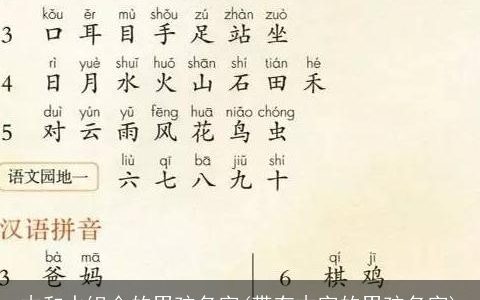 kǒu ěr mù shǒu zú zhàn zuò
3 口 耳 目 手 足 站 坐
rì yuè shuǐ huǒ shān shí tián hé
4 日 月 水 火 山 石 田 禾
duì yún yǔ fēng huā niǎo chóng
5 对 云 雨 风 花 鸟 虫
liù qī bā jiǔ shí
语文园地一 六 七 八 九 十
汉语拼音
bà mā qí jī
3 爸 妈 6 棋 鸡
组合的男孩名字(带有 字的男孩名字)